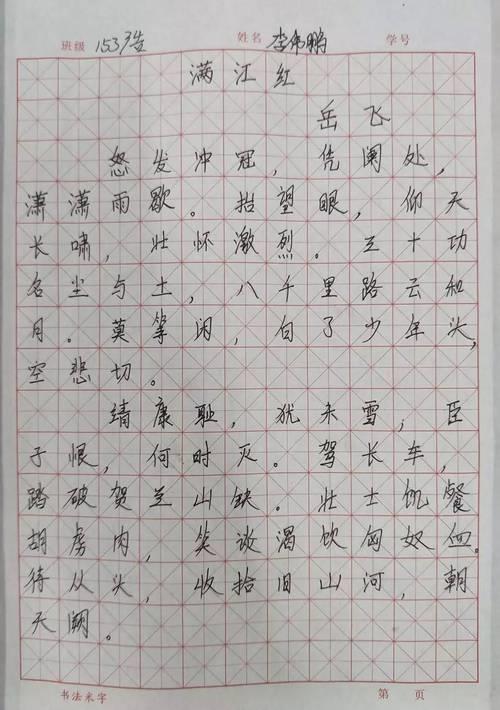 班级 姓名 李伟鹏 学号
满江红
岳飞
怒发冲冠，凭阑处，
潇潇雨歇。抬望眼，仰天
长啸，壮怀激烈。三十功
名尘与土，八千里路云和
月。莫等闲，白了少年头，
空悲切。
靖康耻，犹未雪，臣
子恨，何时灭。驾长车，
踏破贺兰山缺。壮士饥餐
胡虏肉，笑谈渴饮匈奴血。
待从头，收拾旧山河，朝
天阙。
书法米字 第 页